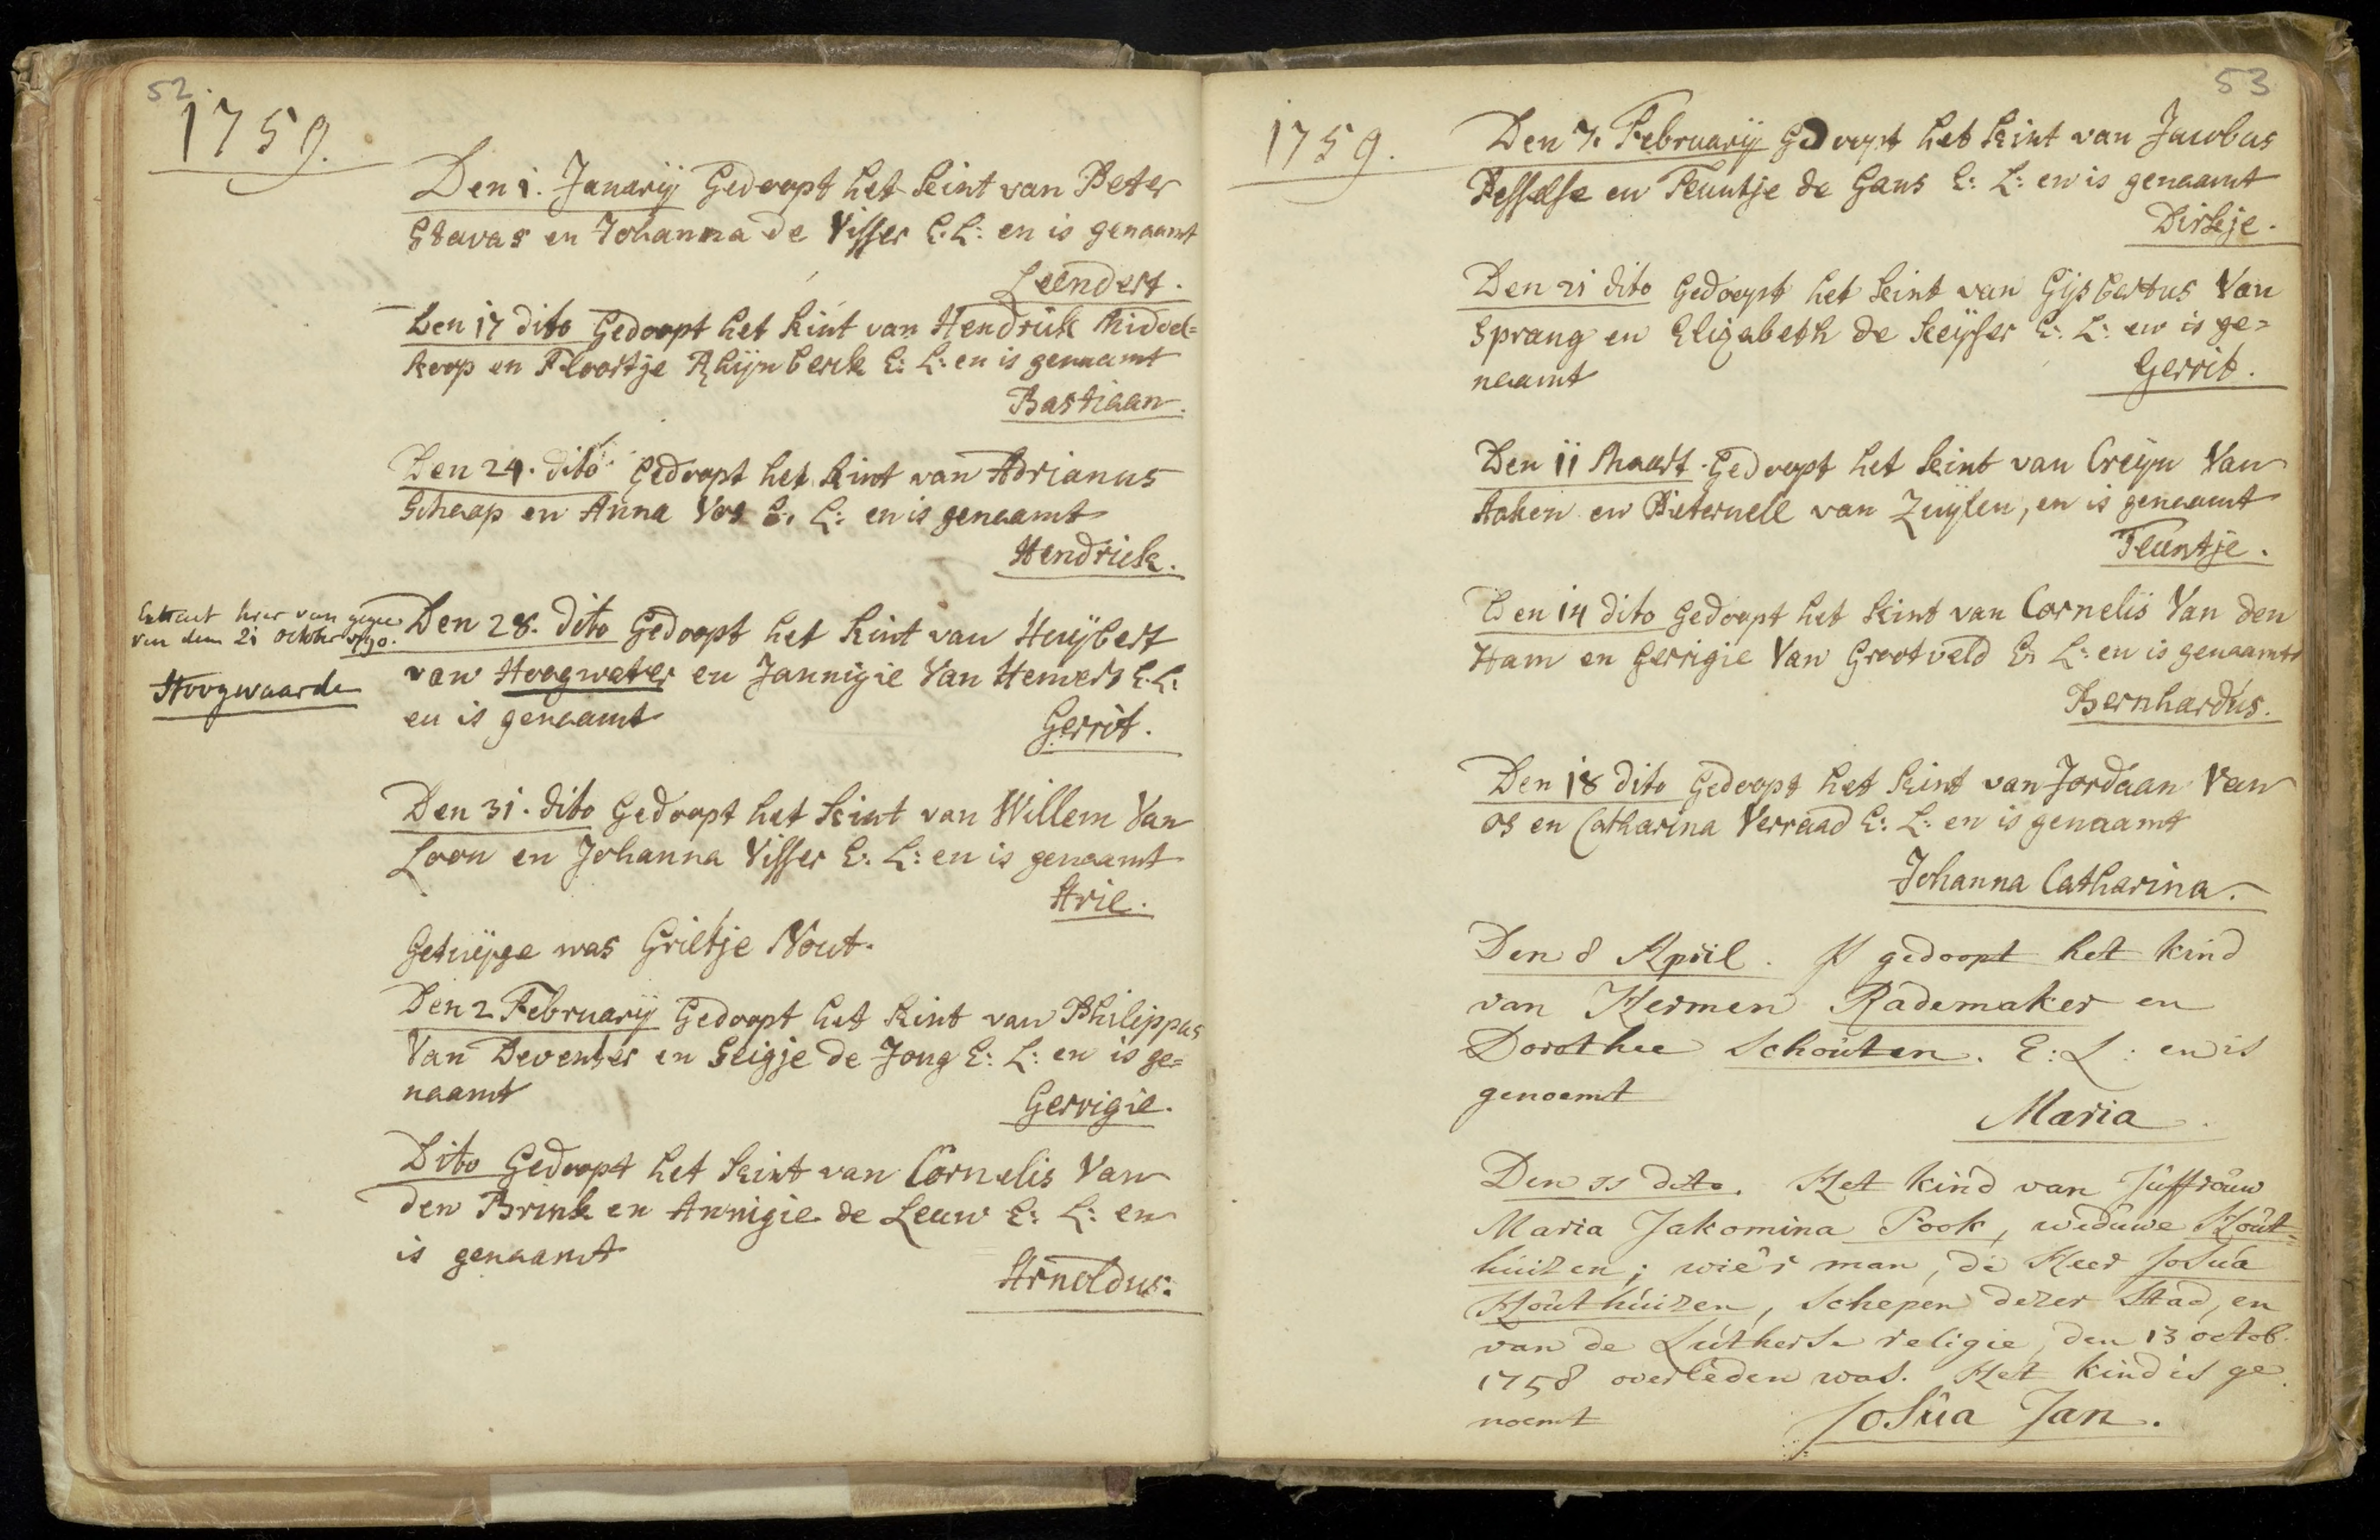 52.
1759.
Den 1. Janarij Gedoopt het kint van Peter
Stavas en Johanna de Visser E: L: en is genaamt
Leendert.
Den 17 dito Gedoopt het kint van Hendrick Middel=
koop en Floortje Rhijnberck E: L: en is genaamt
Bastiaan.
Den 24. dito Gedoopt het kint van Adrianus
Schaap en Anna Vos E: L: en is genaamt
Hendrick.
Extract hier van gegee
ven den 21 october 1790.
Hoogwaarde
Den 28. dito Gedoopt het kint van Huijbert
van Hoogwater en Jannigie Van Hemert E: L:
en is genaamt
Gerrit.
Den 31. dito Gedoopt het kint van Willem Van
Loon en Johanna Visser E: L: en is genaamt
Arie.
Getuijge was Grietje Nout.
Den 2 Februarij Gedoopt het kint van Philippus
Van Deventer en Seigje de Jong E: L: en is ge=
naamt
Gerrigie.
Dito Gedoopt het kint van Cornelis Van
den Brink en Annigie de Leeuw E: L: en
is genaamt
Arnoldus.
53
1759.
Den 7. Februarij Gedoopt het kint van Jacobus
en Teuntje de Gans E: L: en is genaamt
Dirkje.
Den 21 dito Gedoopt het kint van Gijsbertus Van
Sprang en Elizabeth de Keijser E: L: en is ge=
naamt
Gerrit.
Den 11 Maart. Gedoopt het kint van Creijn Van
Aaken en Pieternell van Zuijlen, en is genaamt
Teuntje.
Den 14 dito Gedoopt het kint van Cornelis Van den
Ham en Gerrigie Van Grootveld E: L: en is genaamt
Bernhardus.
Den 18 dito Gedoopt het kint van Jordaan Van
Os en Catharina Verraad E: L: en is genaamt
Johanna Catharina.
Den 8 April. Is gedoopt het kind
van Hermen Rademaker en
Dorothee Schouten. E: L: en is
genoemt
Maria.
Den 11 dito. Het kind van Juffrouw
Maria Jakomina Pook, weduwe Hout=
huizen; wiës man, de Heer Josua
Houthuizen, Schepen dezer Stad, en
van de Lutherse religie, den 13 octob.
1758 overleden was. Het kind is ge
noemt
Josua Jan.